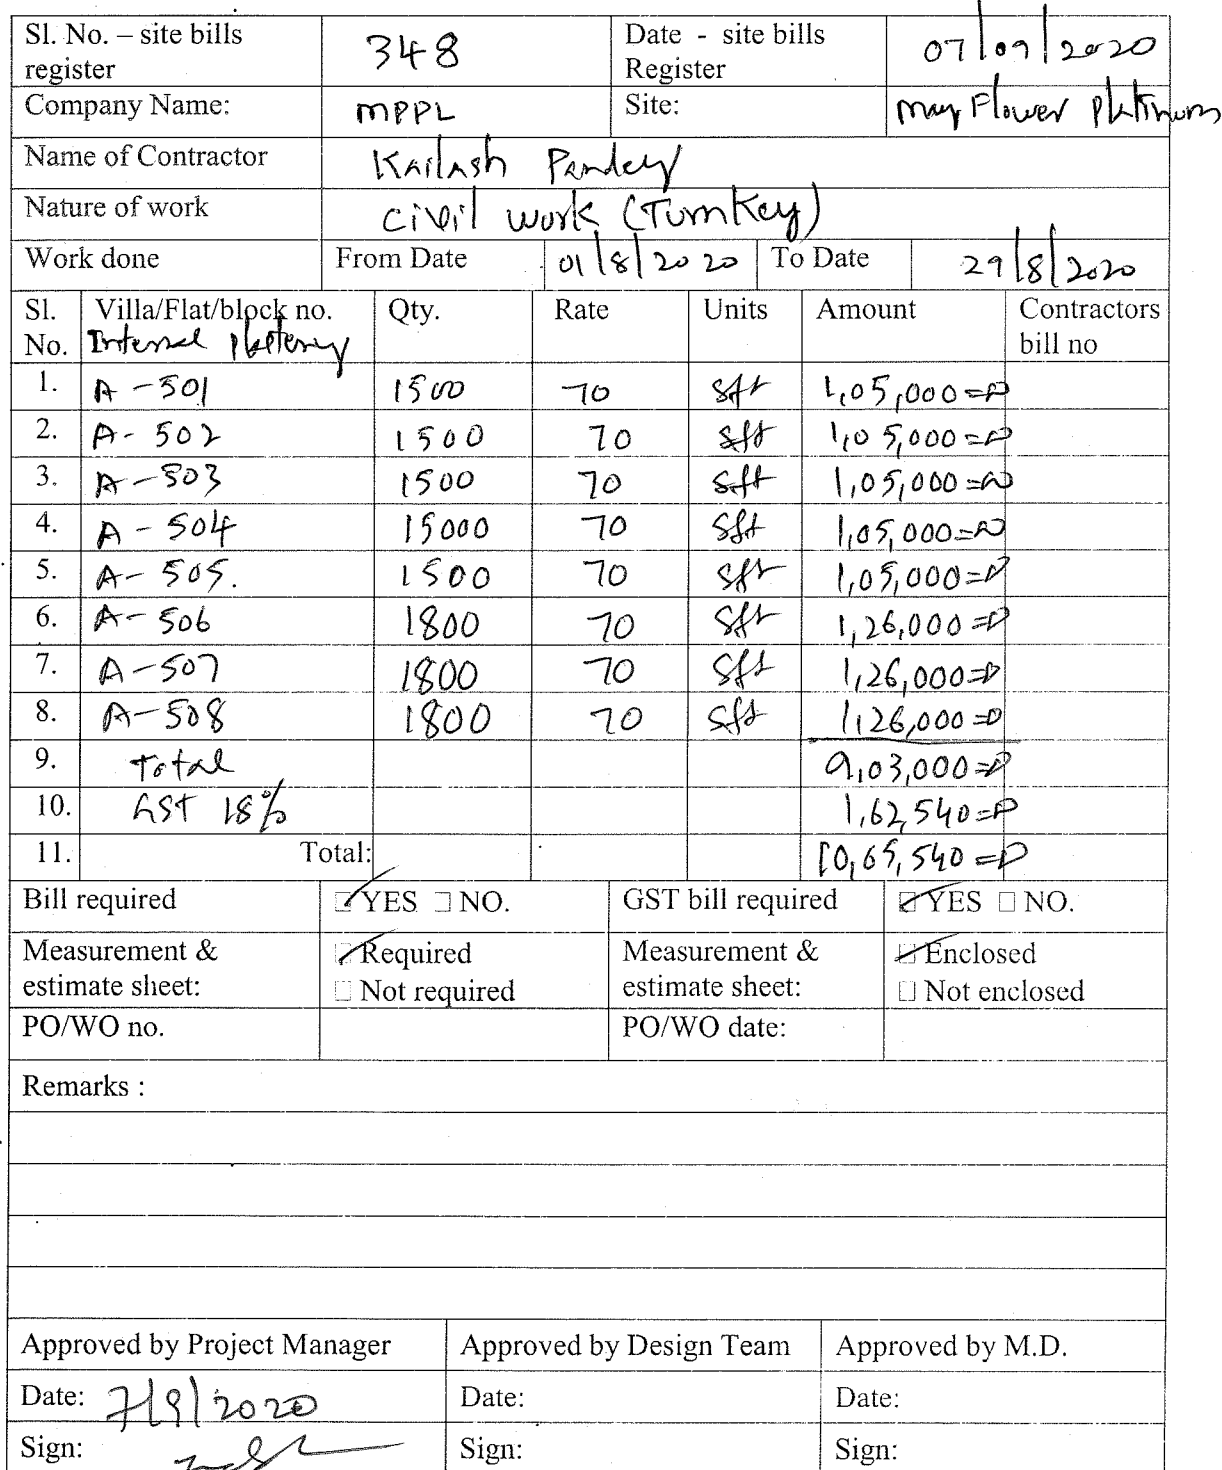 Sl. No. – site bills register 348 Date - site bills Register 07/09/2020
Company Name: MPPL Site: May Flower Platinum
Name of Contractor Kailash Pandey
Nature of work Civil work (Turnkey)
Work done From Date 01/8/2020 To Date 29/8/2020
Sl. No. Villa/Flat/block no. Internal plastering Qty. Rate Units Amount Contractors bill no
1. A-501 1500 70 sft 1,05,000=00
2. A-502 1500 70 sft 1,05,000=00
3. A-503 1500 70 sft 1,05,000=00
4. A-504 15000 70 sft 1,05,000=00
5. A-505. 1500 70 sft 1,05,000=00
6. A-506 1800 70 sft 1,26,000=00
7. A-507 1800 70 sft 1,26,000=00
8. A-508 1800 70 sft 1,26,000=00
9. Total 9,03,000=00
10. GST 18% 1,62,540=00
11. Total: 10,65,540=00
Bill required ☑ YES ☐ NO. GST bill required ☑ YES ☐ NO.
Measurement & estimate sheet: ☑ Required ☐ Not required Measurement & estimate sheet: ☑ Enclosed ☐ Not enclosed
PO/WO no. PO/WO date:
Remarks :
Approved by Project Manager Approved by Design Team Approved by M.D.
Date: 7/9/2020 Date: Date:
Sign: Sign: Sign: